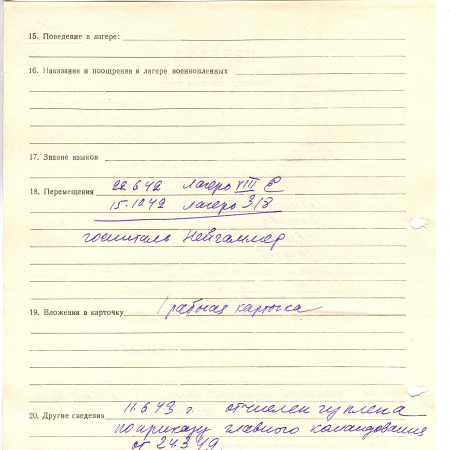 15. Поведение в лагере:
16. Наказания и поощрения в лагере военнопленных
17. Знание языков
18. Перемещения 22.6.42 лагерь VIII E
15.10.42 лагерь
госпиталь Нейгаммер
19. Вложения в карточку карточка
20. Другие сведения 11.6.43 г. отчислен из плена
по приказу главного командования
от 24.3.